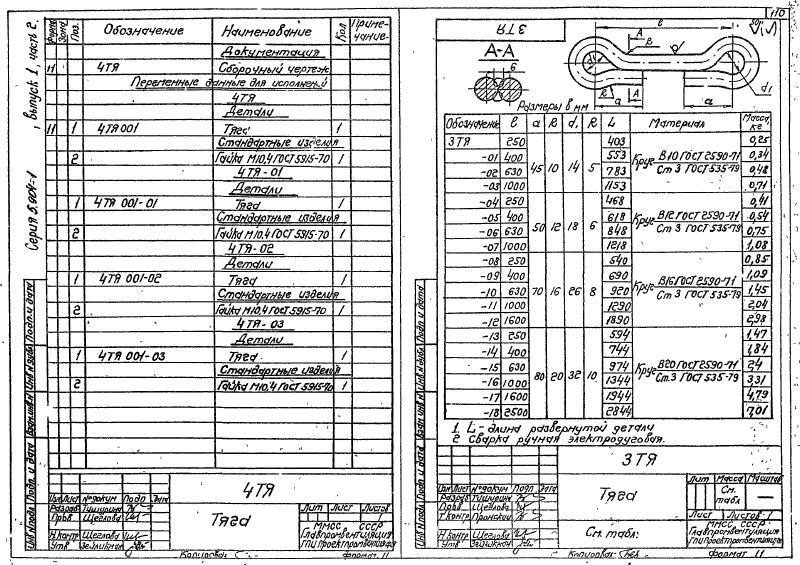 Серия 5.904-1, выпуск 1, часть 2.
Формат Зона Поз. Обозначение Наименование Кол Примечание
Документация
11 4ТЯ Сборочный чертеж
Переменные данные для исполнений
4ТЯ
Детали
11 1 4ТЯ 001 Тяга 1
Стандартные изделия
2 Гайка М10.4 ГОСТ 5915-70 1
4ТЯ-01
Детали
1 4ТЯ 001-01 Тяга 1
Стандартные изделия
2 Гайка М10.4 ГОСТ 5915-70 1
4ТЯ-02
Детали
1 4ТЯ 001-02 Тяга 1
Стандартные изделия
2 Гайка М10.4 ГОСТ 5915-70 1
4ТЯ-03
Детали
1 4ТЯ 001-03 Тяга 1
Стандартные изделия
2 Гайка М10.4 ГОСТ 5915-70 1
Инв №подл Подп. и дата Взам инв № Инв № дубл Подп. и дата
Изм Лист № докум Подп Дата
Разраб Тишурин
Пров Щеглова
Н.контр Щеглова
Утв
4ТЯ
Тяга
Лит Лист Листов
ММСС СССР
Главпромвентиляция
ГПИ Проектпромвентиляция
Копировал
Формат 11
110
3ТЯ
А-А
А
R
ℓ
d1
R
А
а
а
Размеры в мм
Обозначение ℓ а d d1 R L Материал Масса кг
3ТЯ 250 45 10 14 5 403 Круг В10 ГОСТ 2590-71 Ст 3 ГОСТ 535-79 0,25
-01 400 553 0,34
-02 630 783 0,48
-03 1000 1153 0,71
-04 250 50 12 18 6 468 Круг В12 ГОСТ 2590-71 Ст 3 ГОСТ 535-79 0,41
-05 400 618 0,54
-06 630 848 0,75
-07 1000 1218 1,08
-08 250 70 16 26 8 540 Круг В16 ГОСТ 2590-71 Ст 3 ГОСТ 535-79 0,85
-09 400 690 1,09
-10 630 920 1,45
-11 1000 1290 2,04
-12 1600 1890 2,98
-13 250 80 20 32 10 594 Круг В20 ГОСТ 2590-71 Ст.3 ГОСТ 535-79 1,47
-14 400 744 1,84
-15 630 974 2,4
-16 1000 1344 3,31
-17 1600 1944 4,79
-18 2500 2844 7,01
1. L - длина развернутой детали
2. Сварка ручная электродуговая.
Инв №подл Подп. и дата Взам инв № Инв № дубл Подп. и дата
Изм Лист № докум Подп Дата
Разраб Тишурин
Пров Щеглова
Т контр
Н.контр Щеглова
Утв
3ТЯ
Тяга
См. табл.
Лит Масса Масштаб
См. табл —
Лист Листов 1
ММСС СССР
Главпромвентиляция
ГПИ Проектпромвентиляция
Копировал
Формат 11